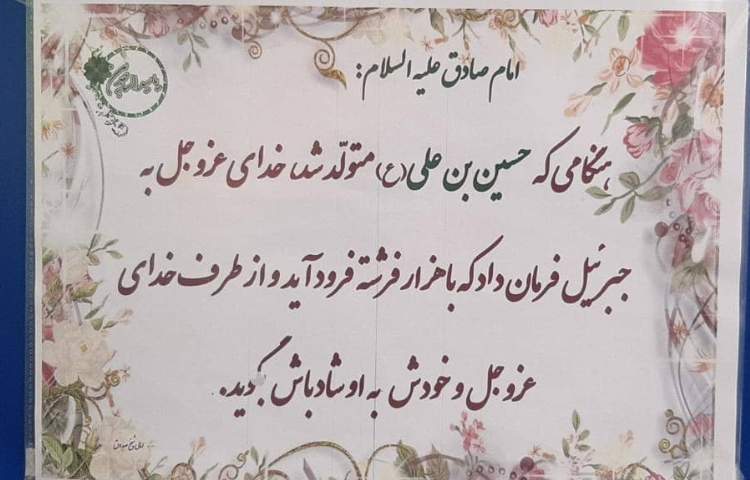 امام صادق علیه السلام:
هنگامی که حسین بن علی (ع) متولّد شد، خدای عزوجل به
جبرئیل فرمان داد که با هزار فرشته فرود آید و از طرف خدای
عزوجل و خودش به او شادباش گوید.